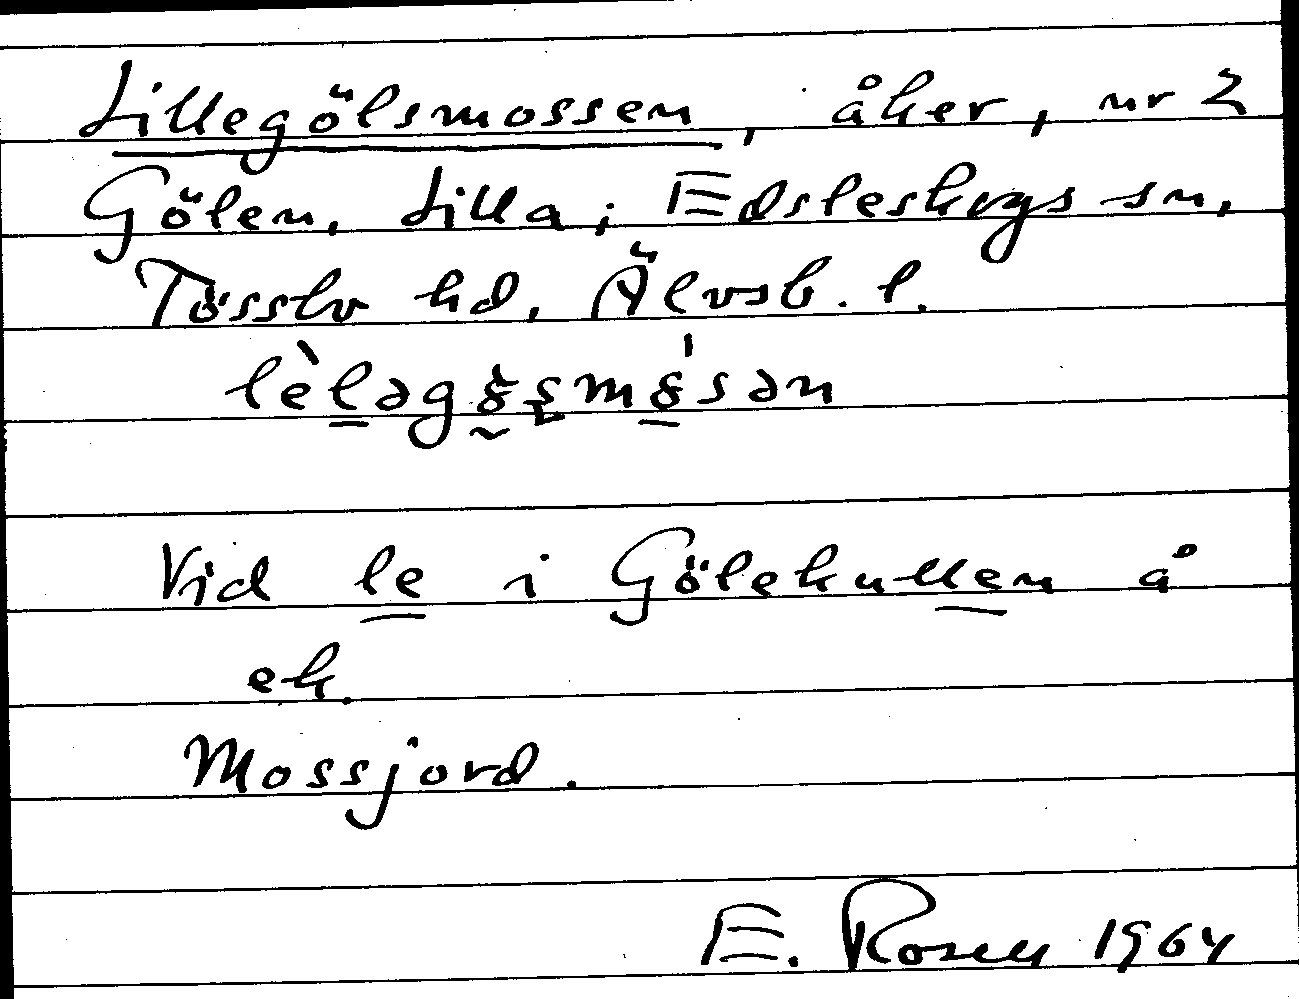 Lillegölsmossen, åker, nr 2
Gölen, Lilla; Edsleskogs sn,
Tössbo hd, Älvsb. l.
Vid le i Gölekullen å
ek.
Mossjord.
E. Rosell 1964